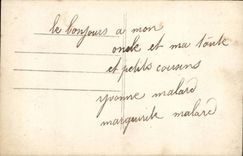 le bonjours a mon
oncle et ma tante
et petits cousins
yvonne malard
marguerite malard